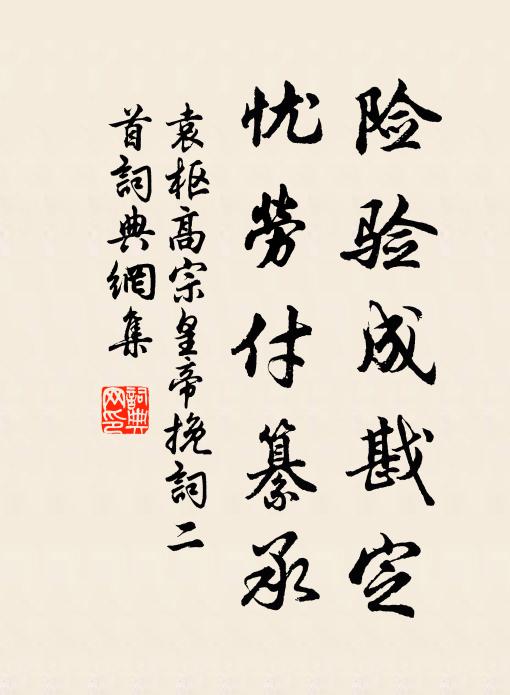 险验成戡定
忧劳付纂承
袁枢高宗皇帝挽詞二
首詞典網集
詞典
网印